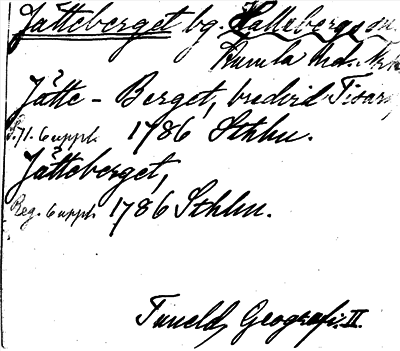 Jätteberget bg. Hallsbergs sn.
Kumla hd. Nrk
Jätte-Berget, bredvid Tisar,
S. 71. 6 uppl. 1786 Sthlm.
Jätteberget,
Reg. 6 uppl. 1786 Sthlm.
Tuneld, Geografi. II.